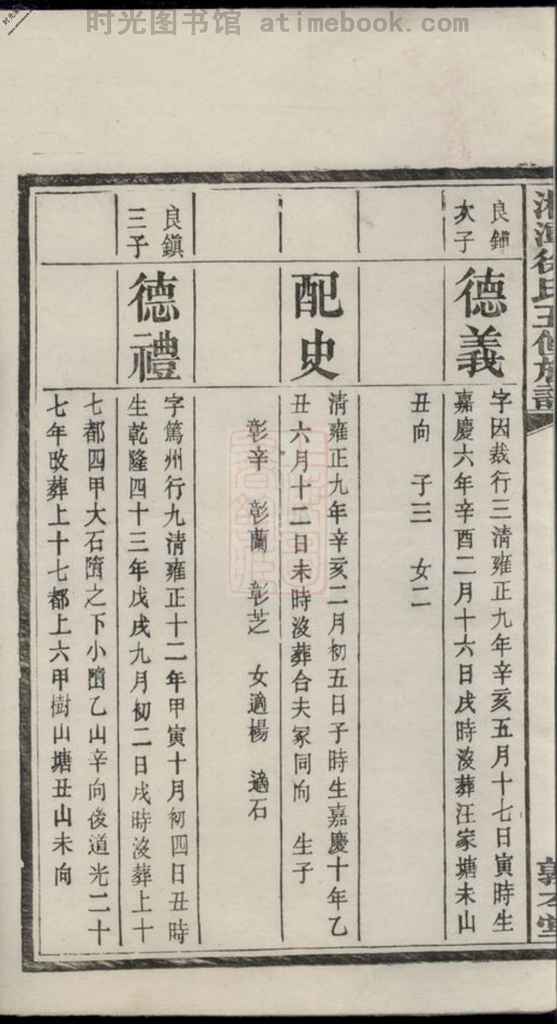 时光图书馆 atimebook.com
湘潭徐氏五修族譜
良鋪
次子
德義
字因裁行三清雍正九年辛亥五月十七日寅時生
嘉慶六年辛酉二月十六日戌時沒葬汪家塘未山
丑向 子三 女二
配史
清雍正九年辛亥二月初五日子時生嘉慶十年乙
丑六月十二日未時沒葬合夫冢同向 生子
彰辛 彰蘭 彰芝 女適楊 適石
良鎮
三子
德禮
字篤州行九清雍正十二年甲寅十月初四日丑時
生乾隆四十三年戊戌九月初二日戌時沒葬上十
七都四甲大石隋之下小隋乙山辛向後道光二十
七年改葬上十七都上六甲樹山塘丑山未向